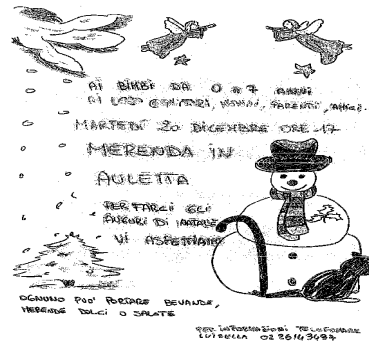 AI BIMBI DA 0 A 7 ANNI
AI LORO GENITORI, NONNI, PARENTI, AMICI.
MARTEDÍ 20 DICEMBRE ORE 17
MERENDA IN
AULETTA
PER FARCI GLI
AUGURI DI NATALE
VI ASPETTIAMO
OGNUNO PUO' PORTARE BEVANDE,
MERENDE DOLCI O SALATE
PER INFORMAZIONI TELEFONARE
LUISELLA 02 26143487